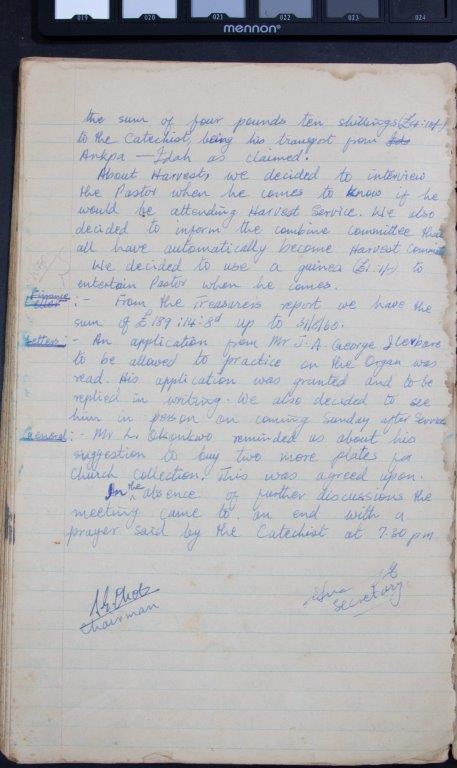 019 020 021 022 023 024
mennon®
the sum of four pounds ten shillings (£4:10/-)
to the Catechist, being his transport from
Ankpa — Idah as claimed.
About Harvest, we decided to interview
the Pastor when he comes to know if he
would be attending Harvest Service. We also
decided to inform the combine committee that
all have automatically become Harvest
We decided to use a guinea (£1:1/-) to
entertain Pastor when he comes.
Finance :- From the Treasurer's report we have the
sum of £189:14:8d up to 31/8/60.
Letters :- An application from Mr J. A. George
to be allowed to practice on the Organ was
read. His application was granted and to be
replied in writing. We also decided to see
him in person on coming Sunday after Service
General :- Mr L. Okonkwo reminded us about his
suggestion to buy two more plates for
Church collection. This was agreed upon.
In the absence of further discussions the
meeting came to an end with a
prayer said by the Catechist at 7.30 pm
Chairman
Secretary